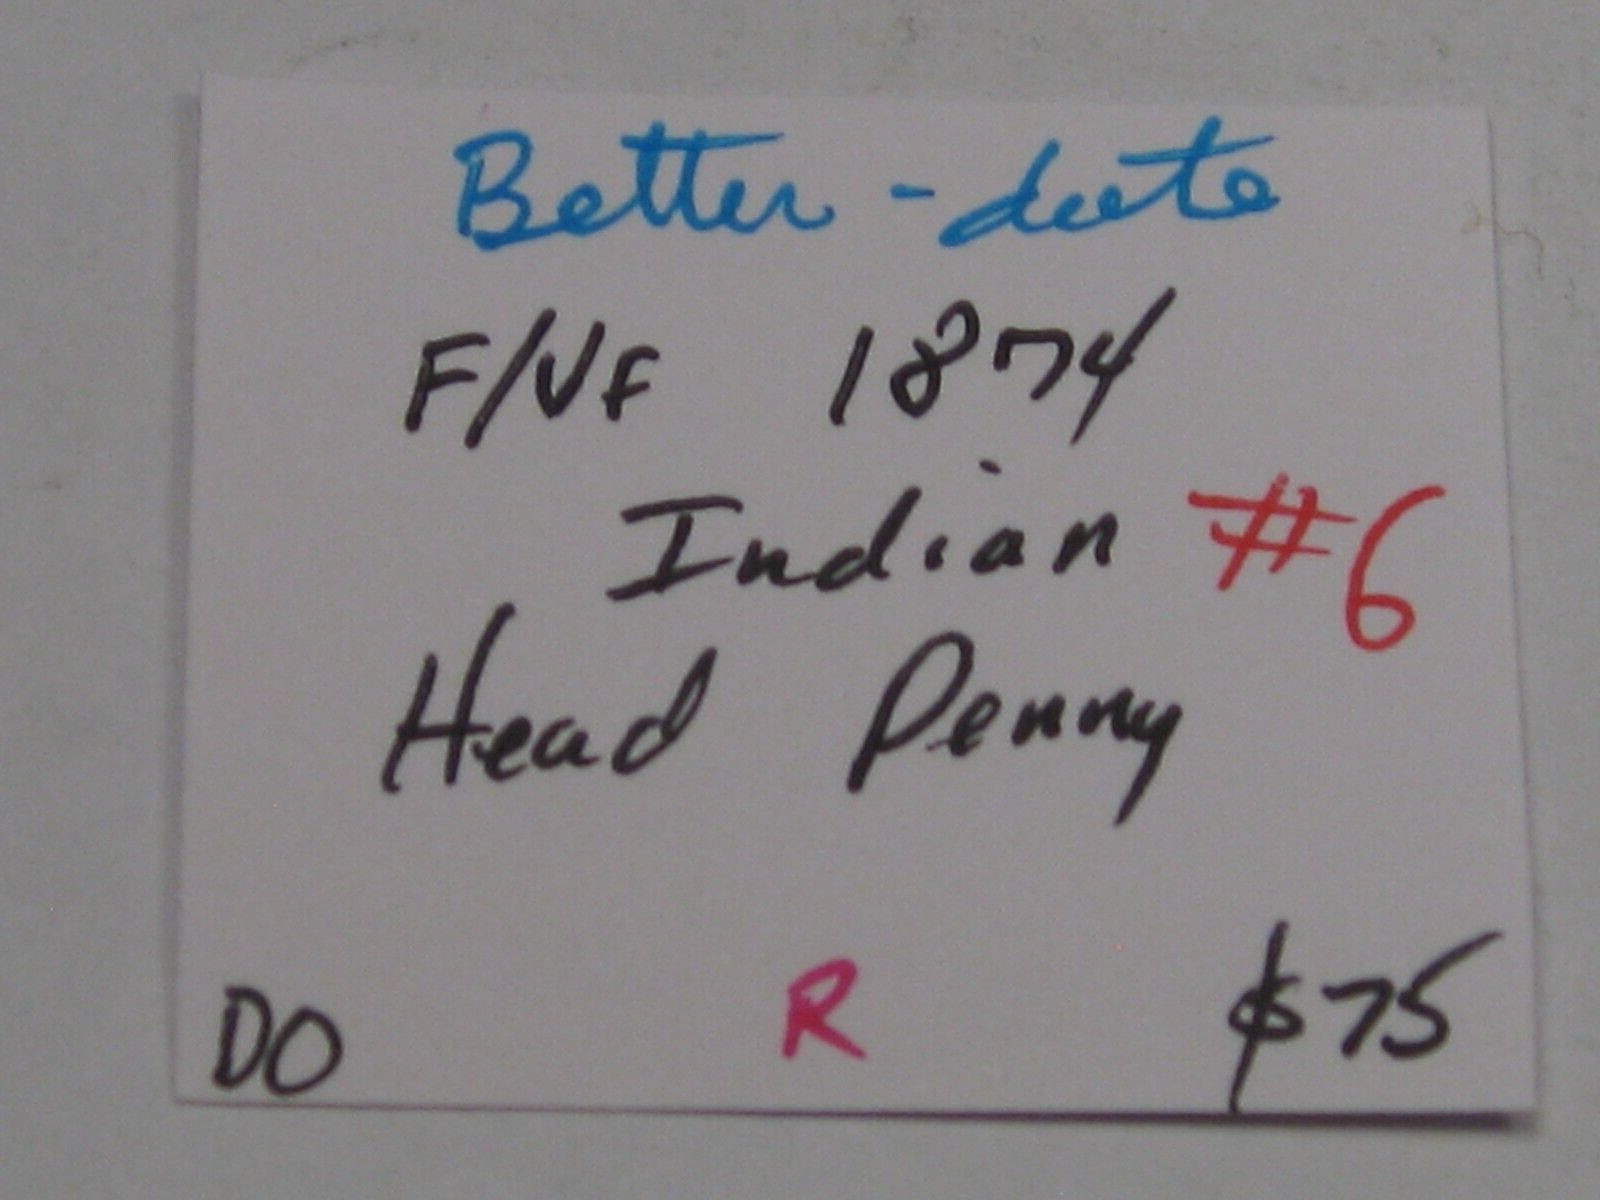 Better - date
F/VF 1874
Indian #6
Head Penny
DO R $75